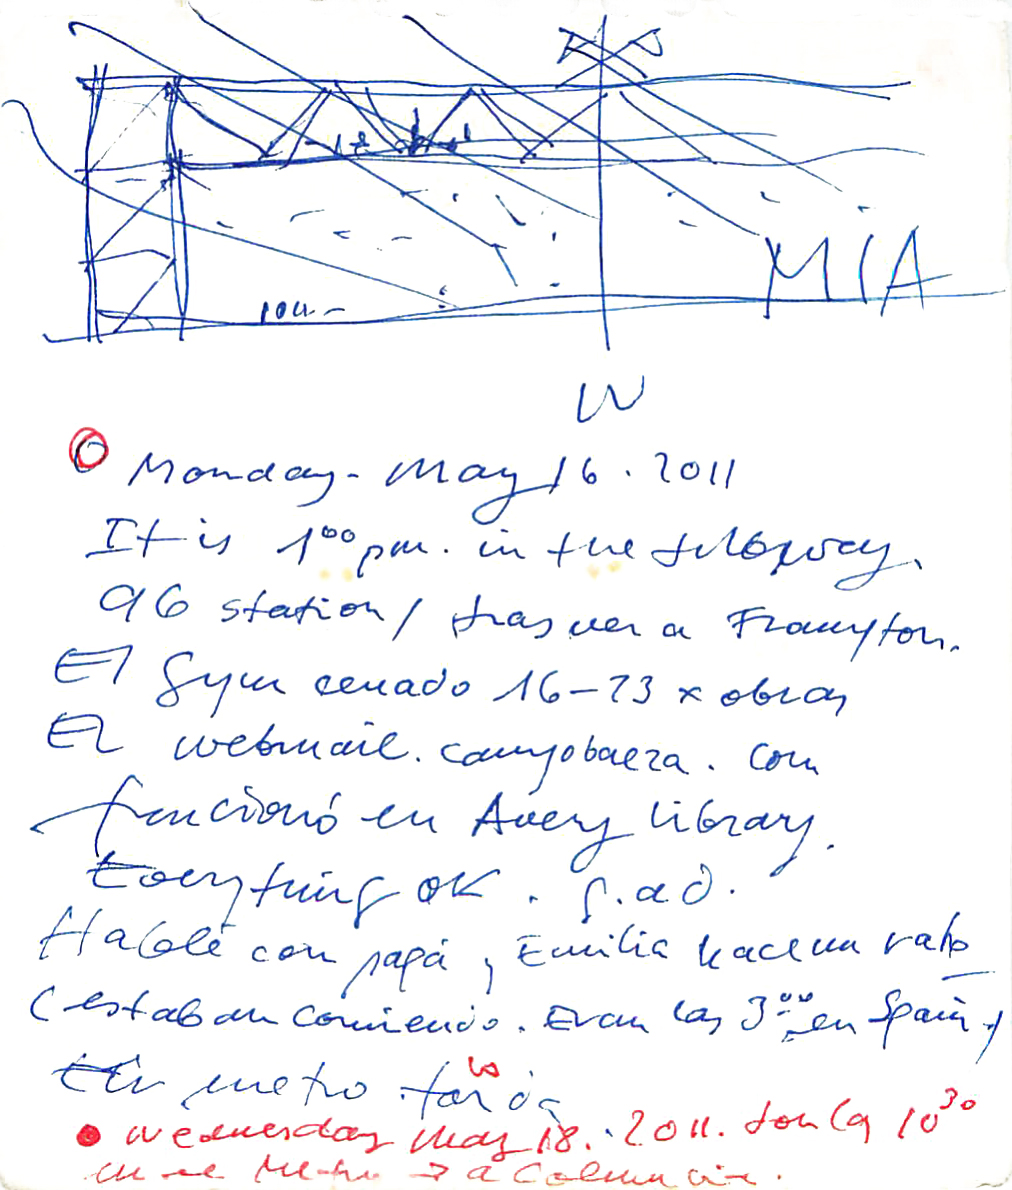 10m
MIA
W
Monday - May 16. 2011
It is 1⁰⁰ pm. in the subway.
96 station / tras ver a Frampton.
El Gym cerrado 16-23 x obras
El webmail.campobaeza.com
funcionó en Avery Library.
Everything OK. g.a.d.
Hablé con papá y Emilia hace un rato
(estaban comiendo. Eran las 3⁰⁰ en Spain)
El metro tarda
Wednesday May 18. 2011. Son las 10³⁰
en el Metro → a Columbia.